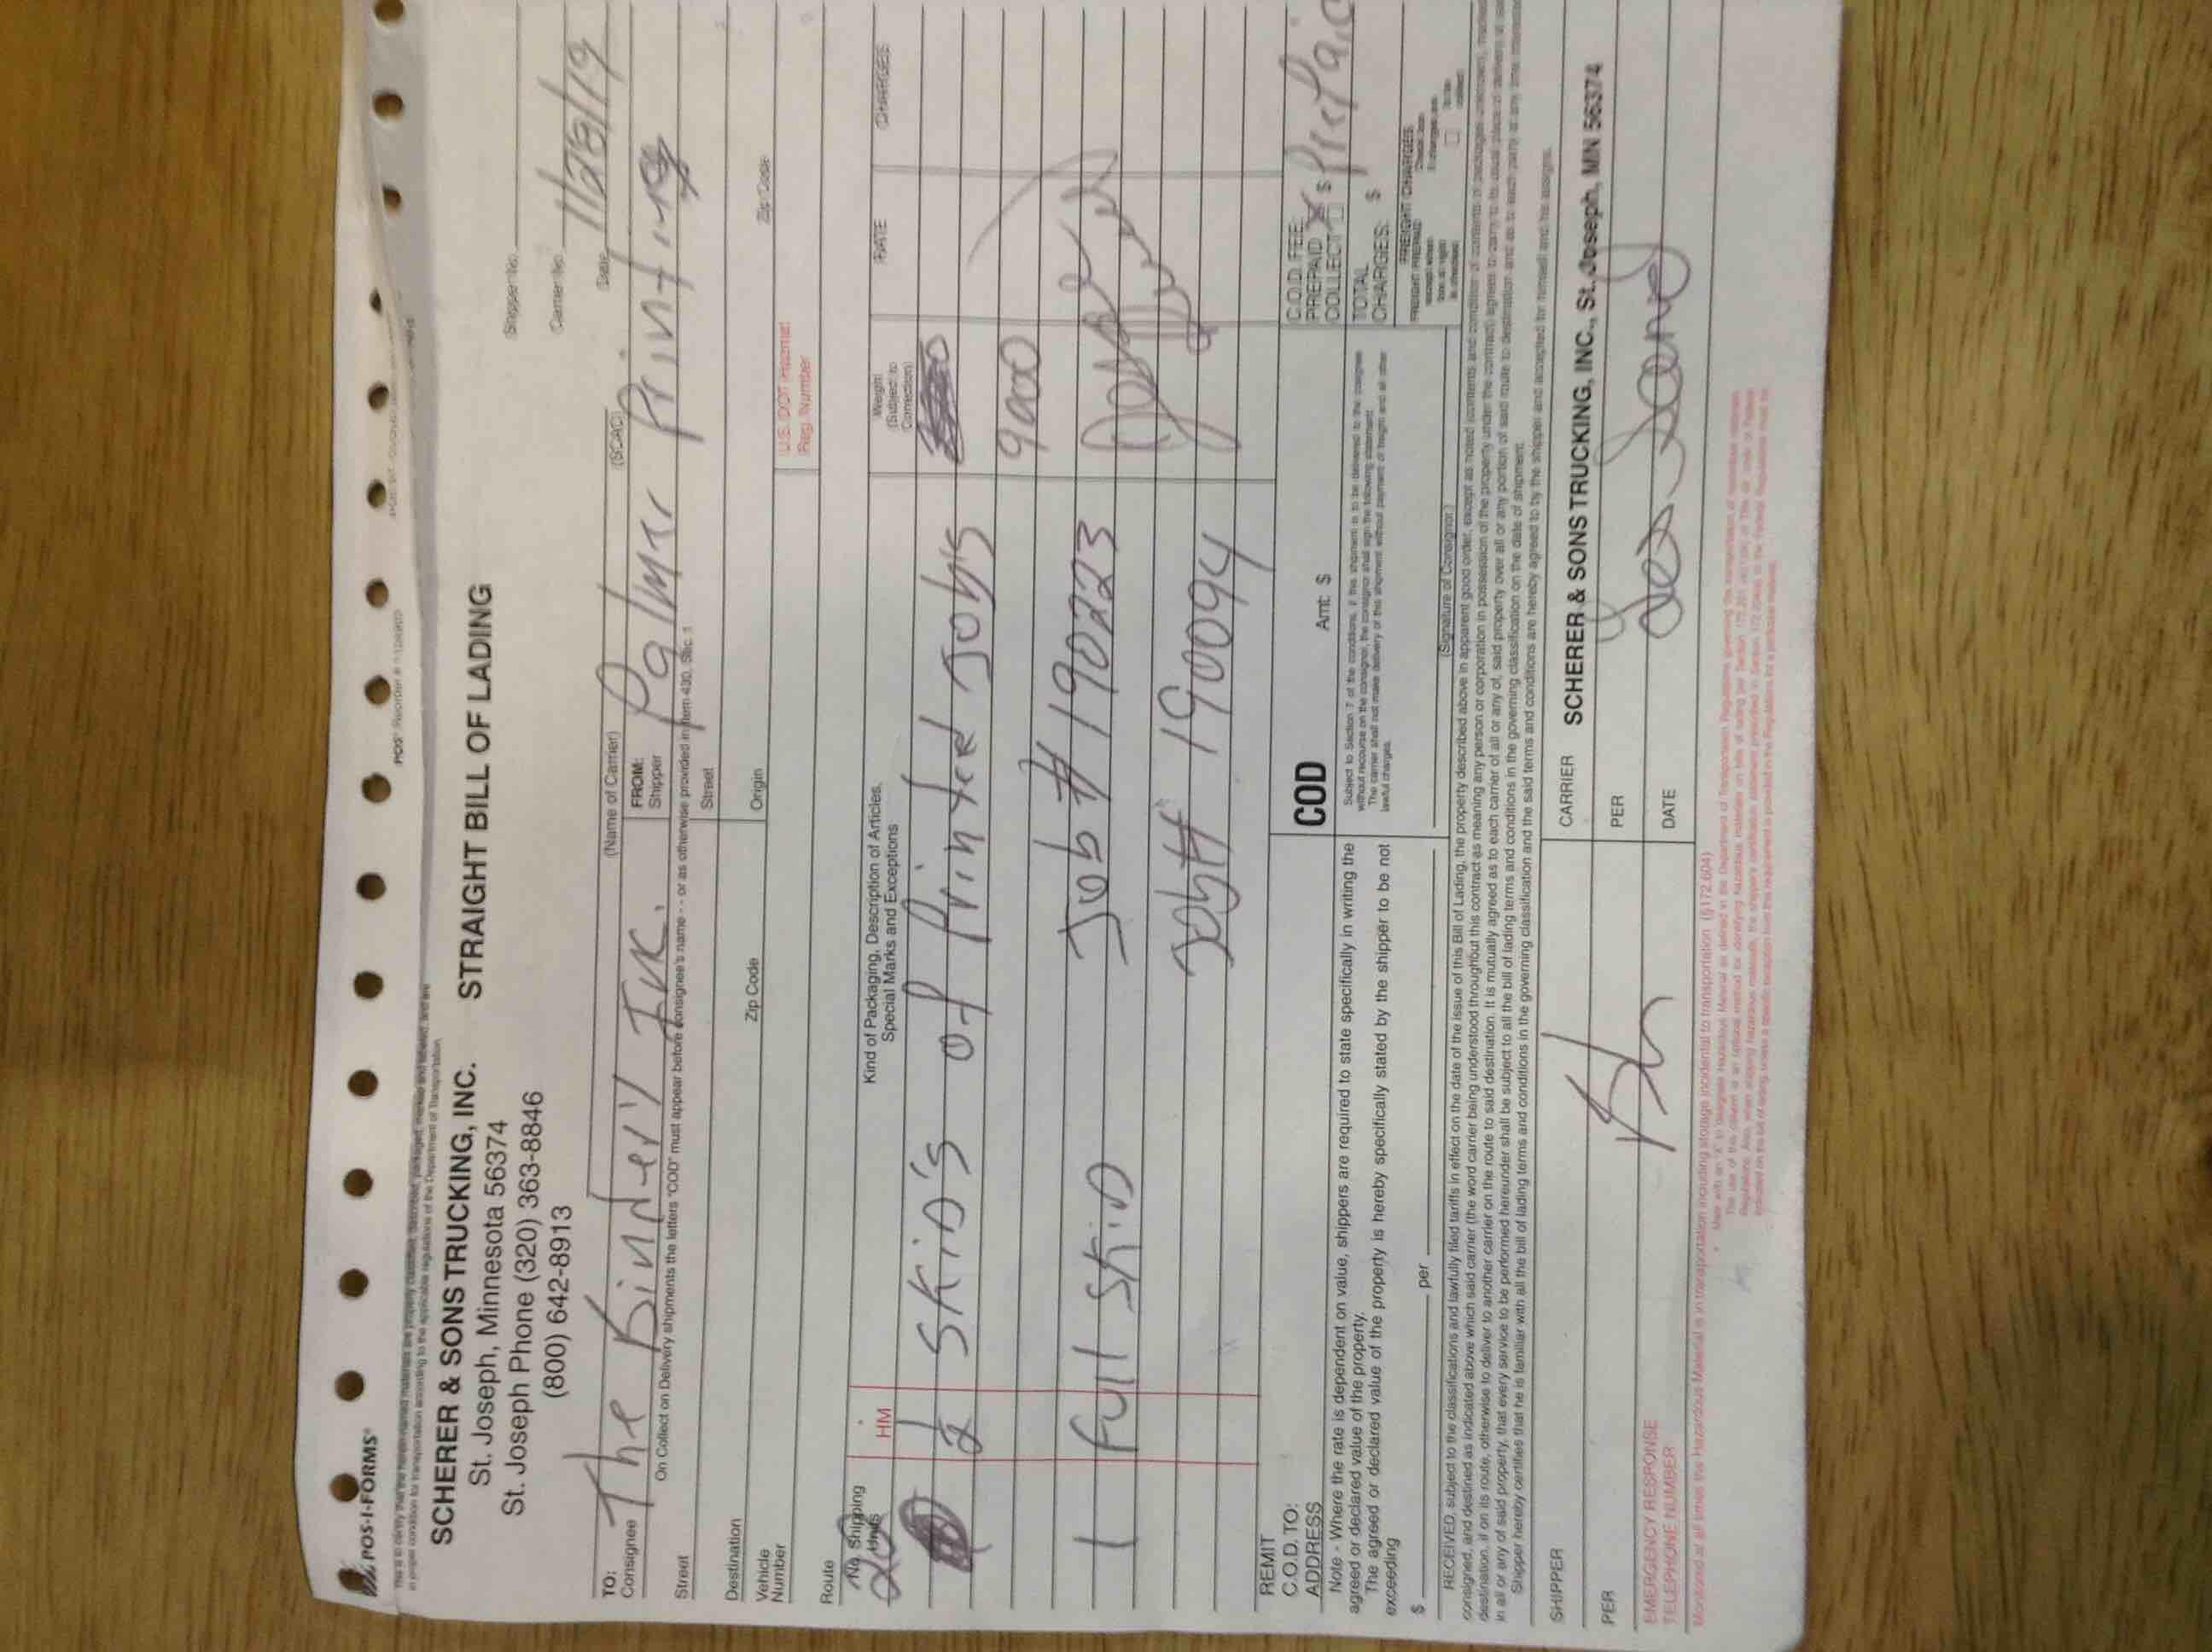 POS-I-FORMS®
POS® Reorder #
This is to certify that the herein-named materials are properly classified, described, packaged, marked and labeled, and are
in proper condition for transportation according to the applicable regulations of the Department of Transportation
SCHERER & SONS TRUCKING, INC. STRAIGHT BILL OF LADING
St. Joseph, Minnesota 56374
St. Joseph Phone (320) 363-8846
(800) 642-8913
Shipper No.
Carrier No.
Date 11/28/19
(Name of Carrier) (SCAC)
TO:
Consignee The Bindery Inc.
FROM:
Shipper Palmer Printing
On Collect on Delivery shipments the letters "COD" must appear before consignee's name - - or as otherwise provided in Item 430, Sec. 1
Street
Street
Destination Zip Code
Origin Zip Code
Vehicle
Number
U.S. DOT Hazmat
Reg. Number
Route
No. Shipping
Units
HM
Kind of Packaging, Description of Articles,
Special Marks and Exceptions
Weight
(Subject to
Correction)
RATE
CHARGES
20
1/2 Skid's of Printed Jobs
9000
1 Full Skid Job # 190223
Job# 190094
REMIT
C.O.D. TO:
ADDRESS
COD Amt: $
C.O.D. FEE:
PREPAID X
COLLECT □ $ Prepaid
TOTAL
CHARGES: $
FREIGHT CHARGES:
FREIGHT PREPAID
Note - Where the rate is dependent on value, shippers are required to state specifically in writing the
agreed or declared value of the property.
The agreed or declared value of the property is hereby specifically stated by the shipper to be not
exceeding
$ per
Subject to Section 7 of the conditions, if this shipment is to be delivered to the consignee
without recourse on the consignor, the consignor shall sign the following statement:
The carrier shall not make delivery of this shipment without payment of freight and all other
lawful charges.
(Signature of Consignor)
RECEIVED, subject to the classifications and lawfully filed tariffs in effect on the date of the issue of this Bill of Lading, the property described above in apparent good order, except as noted (contents and condition of contents of packages unknown), marked
consigned, and destined as indicated above which said carrier (the word carrier being understood throughout this contract as meaning any person or corporation in possession of the property under the contract) agrees to carry to its usual place of delivery at said
destination, if on its route, otherwise to deliver to another carrier on the route to said destination. It is mutually agreed as to each carrier of all or any of, said property over all or any portion of said route to destination and as to each party at any time interested
in all or any of said property, that every service to be performed hereunder shall be subject to all the bill of lading terms and conditions in the governing classification on the date of shipment.
Shipper hereby certifies that he is familiar with all the bill of lading terms and conditions in the governing classification and the said terms and conditions are hereby agreed to by the shipper and accepted for himself and his assigns.
SHIPPER
CARRIER SCHERER & SONS TRUCKING, INC., St. Joseph, MN 56374
PER
PER
EMERGENCY RESPONSE
TELEPHONE NUMBER
DATE
Monitored at all times the Hazardous Material is in transportation including storage incidental to transportation (§172.604)